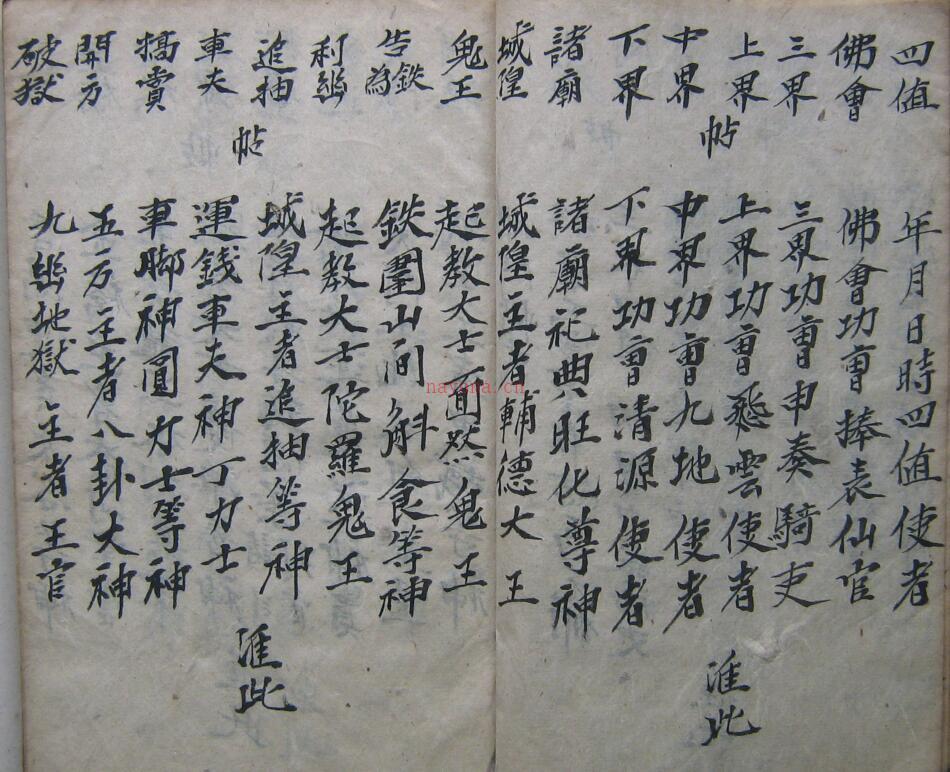 四值
佛會
三界
上界
中界
下界
諸廟
城隍
帖
年月日時四值使者
佛會功曹捧表仙官
三界功曹申奏騎吏
上界功曹飛雲使者
中界功曹九地使者
下界功曹清源使者
諸廟祀典旺化尊神
城隍主者輔德大王
准此
鬼王
鉄
告為
利幽
追抽
車夫
犒賞
開方
破獄
帖
起教大士面然鬼王
鉄圍山间斛食等神
起教大士陀羅鬼王
城隍主者追抽等神
運錢車夫神丁力士
車脚神圓力士等神
五方主者八卦大神
九幽地獄主者王官
准此
nayona.cn